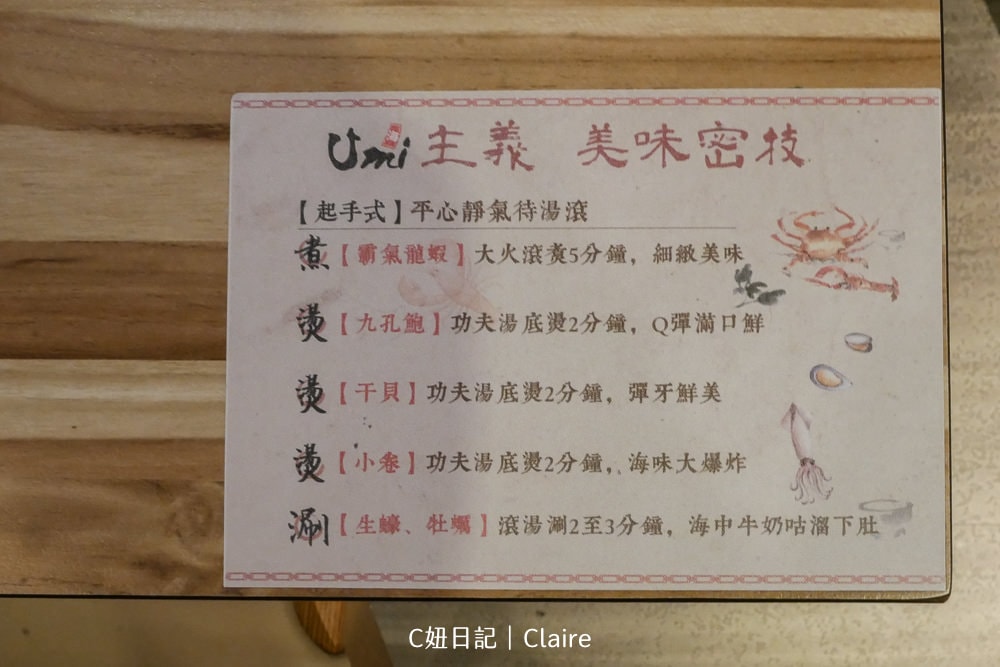 Umi 主義 美味密技
【起手式】平心靜氣待湯滾
煮【霸氣龍蝦】大火滾煮5分鐘，細緻美味
燙【九孔鮑】功夫湯底燙2分鐘，Q彈滿口鮮
燙【干貝】功夫湯底燙2分鐘，彈牙鮮美
燙【小卷】功夫湯底燙2分鐘，海味大爆炸
涮【生蠔、牡蠣】滾湯涮2至3分鐘，海中牛奶咕溜下肚
C妞日記｜Claire